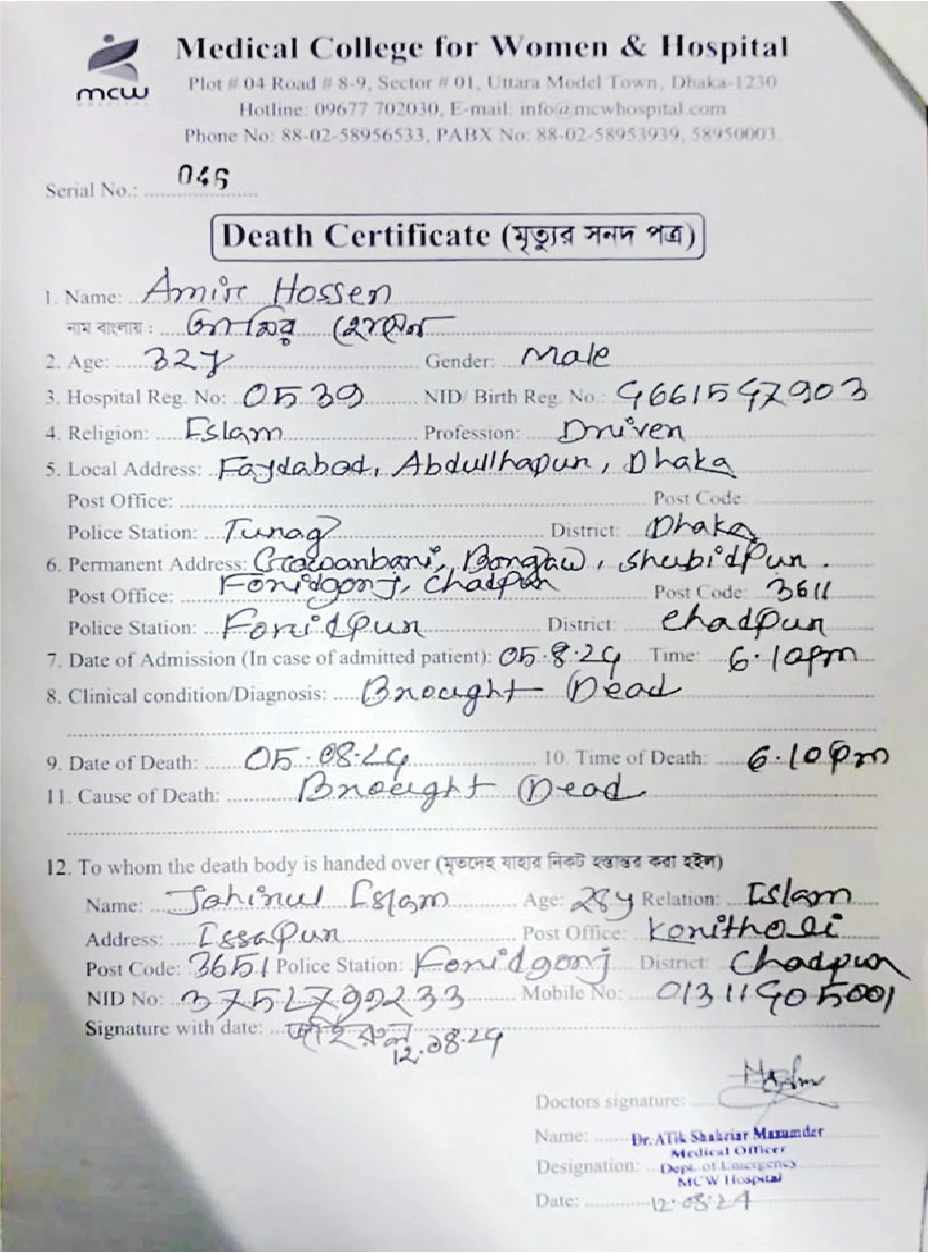 mcw
Medical College for Women & Hospital
Plot # 04 Road # 8-9, Sector # 01, Uttara Model Town, Dhaka-1230
Hotline: 09677 702030, E-mail: info@mcwhospital.com
Phone No: 88-02-58956533, PABX No: 88-02-58953939, 58950003
Serial No.:
Death Certificate (মৃত্যুর সনদ পত্র)
1. Name: Amir Hossen
নাম বাংলায় : আমির হোসেন
2. Age: 32y Gender: Male
3. Hospital Reg. No: 0539 NID/ Birth Reg. No.:
4. Religion: Islam Profession: Driver
5. Local Address: Faydabad, Abdullhapur, Dhaka
Post Office: Post Code:
Police Station: Turag District: Dhaka
6. Permanent Address: Shubidpur.
Post Office: Foridgonj, Chadpur Post Code: 3611
Police Station: Foridpur District: Chadpur
7. Date of Admission (In case of admitted patient): 05.8.24 Time: 6.10pm
8. Clinical condition/Diagnosis: Brought Dead
9. Date of Death: 05.08.24 10. Time of Death: 6.10pm
11. Cause of Death: Brought Dead
12. To whom the death body is handed over (মৃতদেহ যাহার নিকট হস্তান্তর করা হইল)
Name: Jahirul Islam Age: 28y Relation: Islam
Address: Issapur Post Office:
Post Code: 3651 Police Station: Foridgonj District: Chadpur
NID No: Mobile No:
Signature with date: 12.08.24
Doctors signature:
Name: Dr. Atik Shahriar Mazumder
Medical Officer
Designation: Dept. of Emergency
MCW Hospital
Date: 12.08.24